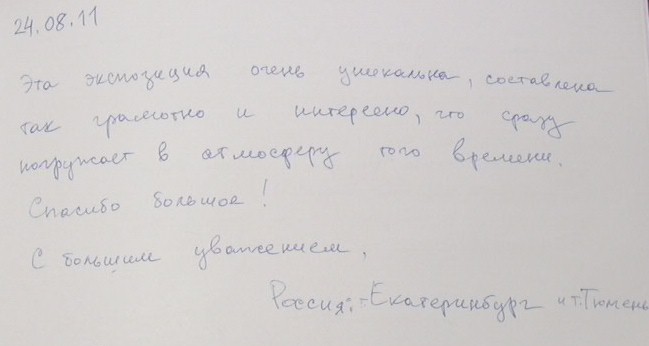 24.08.11
Эта экспозиция очень уникальна, составлена
так грамотно и интересно, что сразу
погружает в атмосферу того времени.
Спасибо большое!
С большим уважением,
Россия: Екатеринбург и г.Тюмень